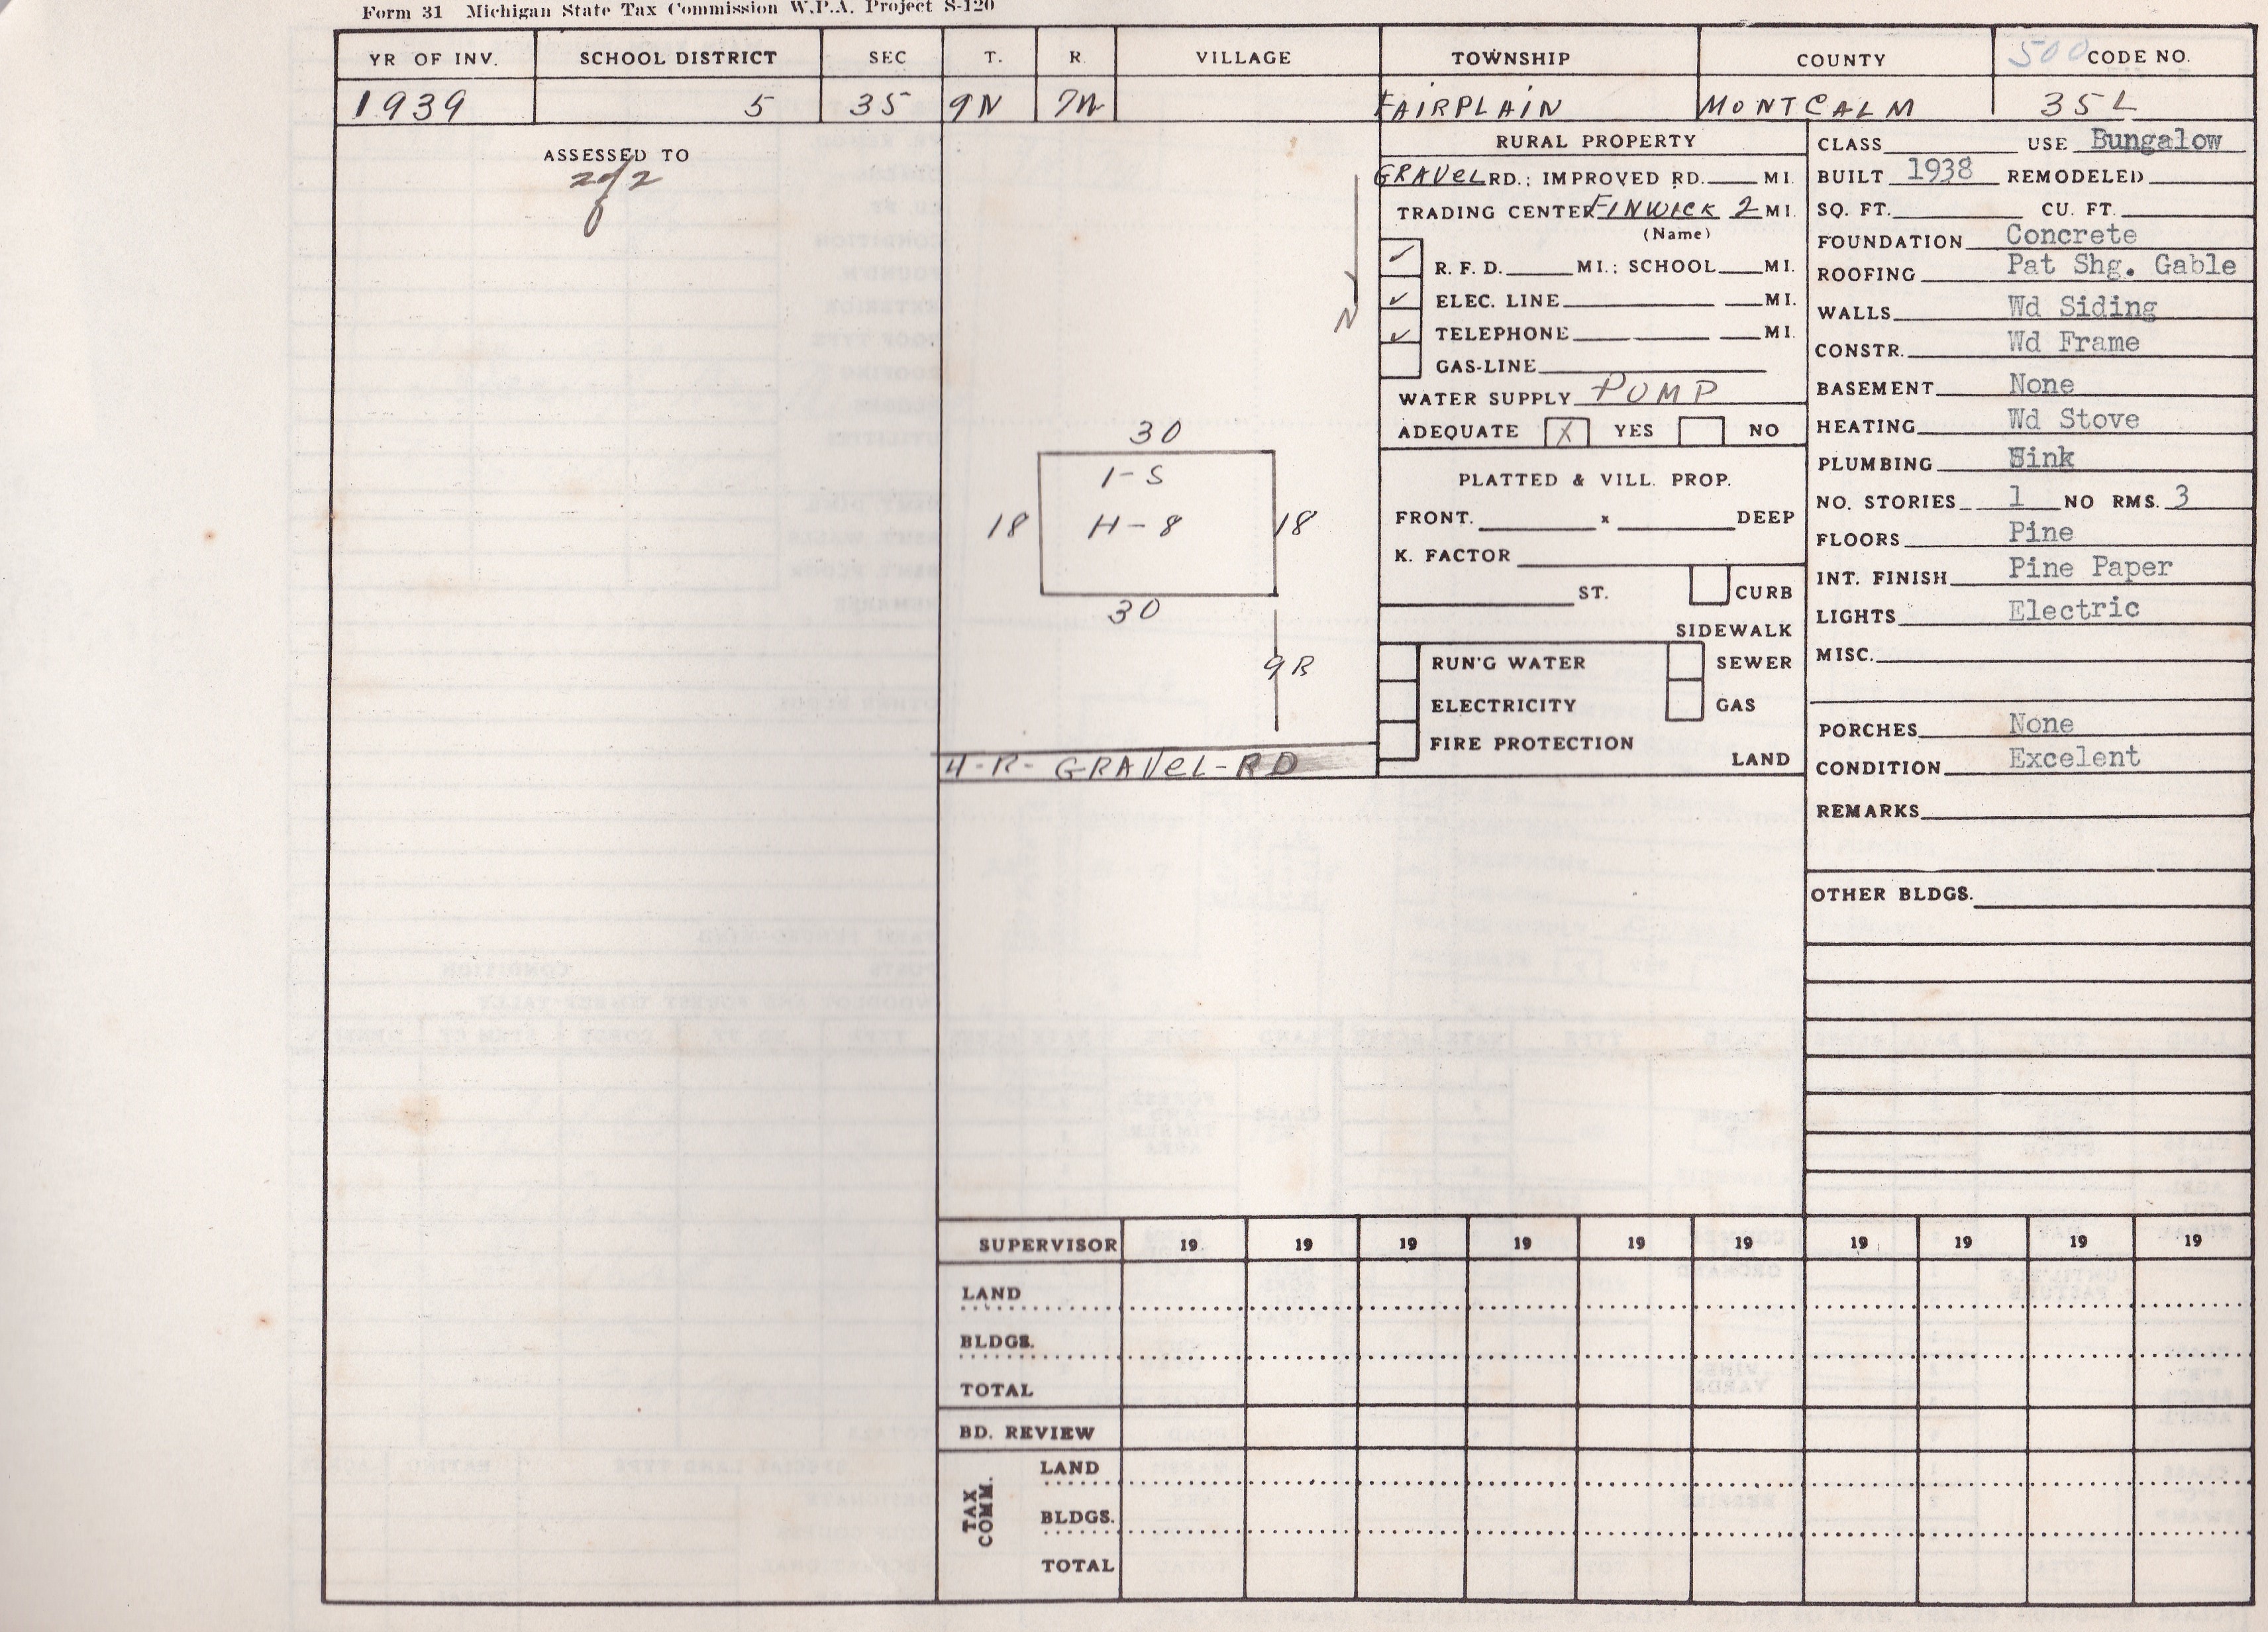 Form 31 Michigan State Tax Commission W.P.A. Project S-120
YR OF INV. SCHOOL DISTRICT SEC T. R VILLAGE TOWNSHIP COUNTY 500 CODE NO.
1939 5 35 9N 7W FAIRPLAIN MONTCALM 35L
ASSESSED TO
2 of 2
N
30
1-S
18 H-8 18
30
9R
4-R-GRAVEL-RD
RURAL PROPERTY
GRAVEL RD.; IMPROVED RD. MI.
TRADING CENTER FINWICK 2 MI.
(Name)
✓ R. F. D. MI.: SCHOOL MI.
✓ ELEC. LINE MI.
✓ TELEPHONE MI.
GAS-LINE
WATER SUPPLY PUMP
ADEQUATE X YES NO
PLATTED & VILL. PROP.
FRONT. x DEEP
K. FACTOR
ST. CURB
SIDEWALK
RUN'G WATER SEWER
ELECTRICITY GAS
FIRE PROTECTION
LAND
CLASS USE Bungalow
BUILT 1938 REMODELED
SQ. FT. CU. FT.
FOUNDATION Concrete
ROOFING Pat Shg. Gable
WALLS Wd Siding
CONSTR. Wd Frame
BASEMENT None
HEATING Wd Stove
PLUMBING Sink
NO. STORIES 1 NO RMS. 3
FLOORS Pine
INT. FINISH Pine Paper
LIGHTS Electric
MISC.
PORCHES None
CONDITION Excelent
REMARKS
OTHER BLDGS.
SUPERVISOR 19 19 19 19 19 19 19 19 19 19
LAND
BLDGS.
TOTAL
BD. REVIEW
TAX COMM.
LAND
BLDGS.
TOTAL